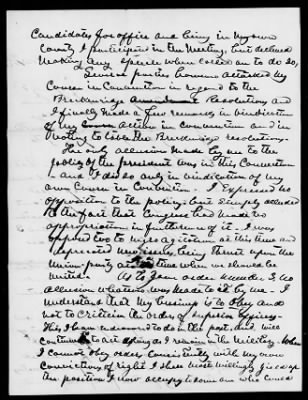 Candidates for office and being in my own
County I participated in the Meeting, but declined
Making any speech when called on to do so,
Several parties however attacked my
Course in Convention in regard to the
Breckinridge Resolutions and
I finally made a few remarks in vindication
of my action in convention and in
the Breckinridge resolutions
The only allusion made by me to the
policy of the president was in this Connection
- and I did so only in vindication of my
own Course in Convention. I expressed no
opposition to the policy, but simply alluded
to the fact that Congress had made no
appropriation in furtherance of it. I was
opposed to negro agitation at this time and
deprecated new issues being thrust upon the
Union party at a time when we should be
united. As to Genl order number 3, no
allusion whatever was made to it by me - I
understand that my business is to obey and
not to criticise the orders of superior officers -
This I have endeavored to do in the past, and will
continue to act as long as I remain in the Military. When
I cannot obey orders Consistently with my own
Convictions of right I shall most willingly give up
the position I now occupy to some one who could